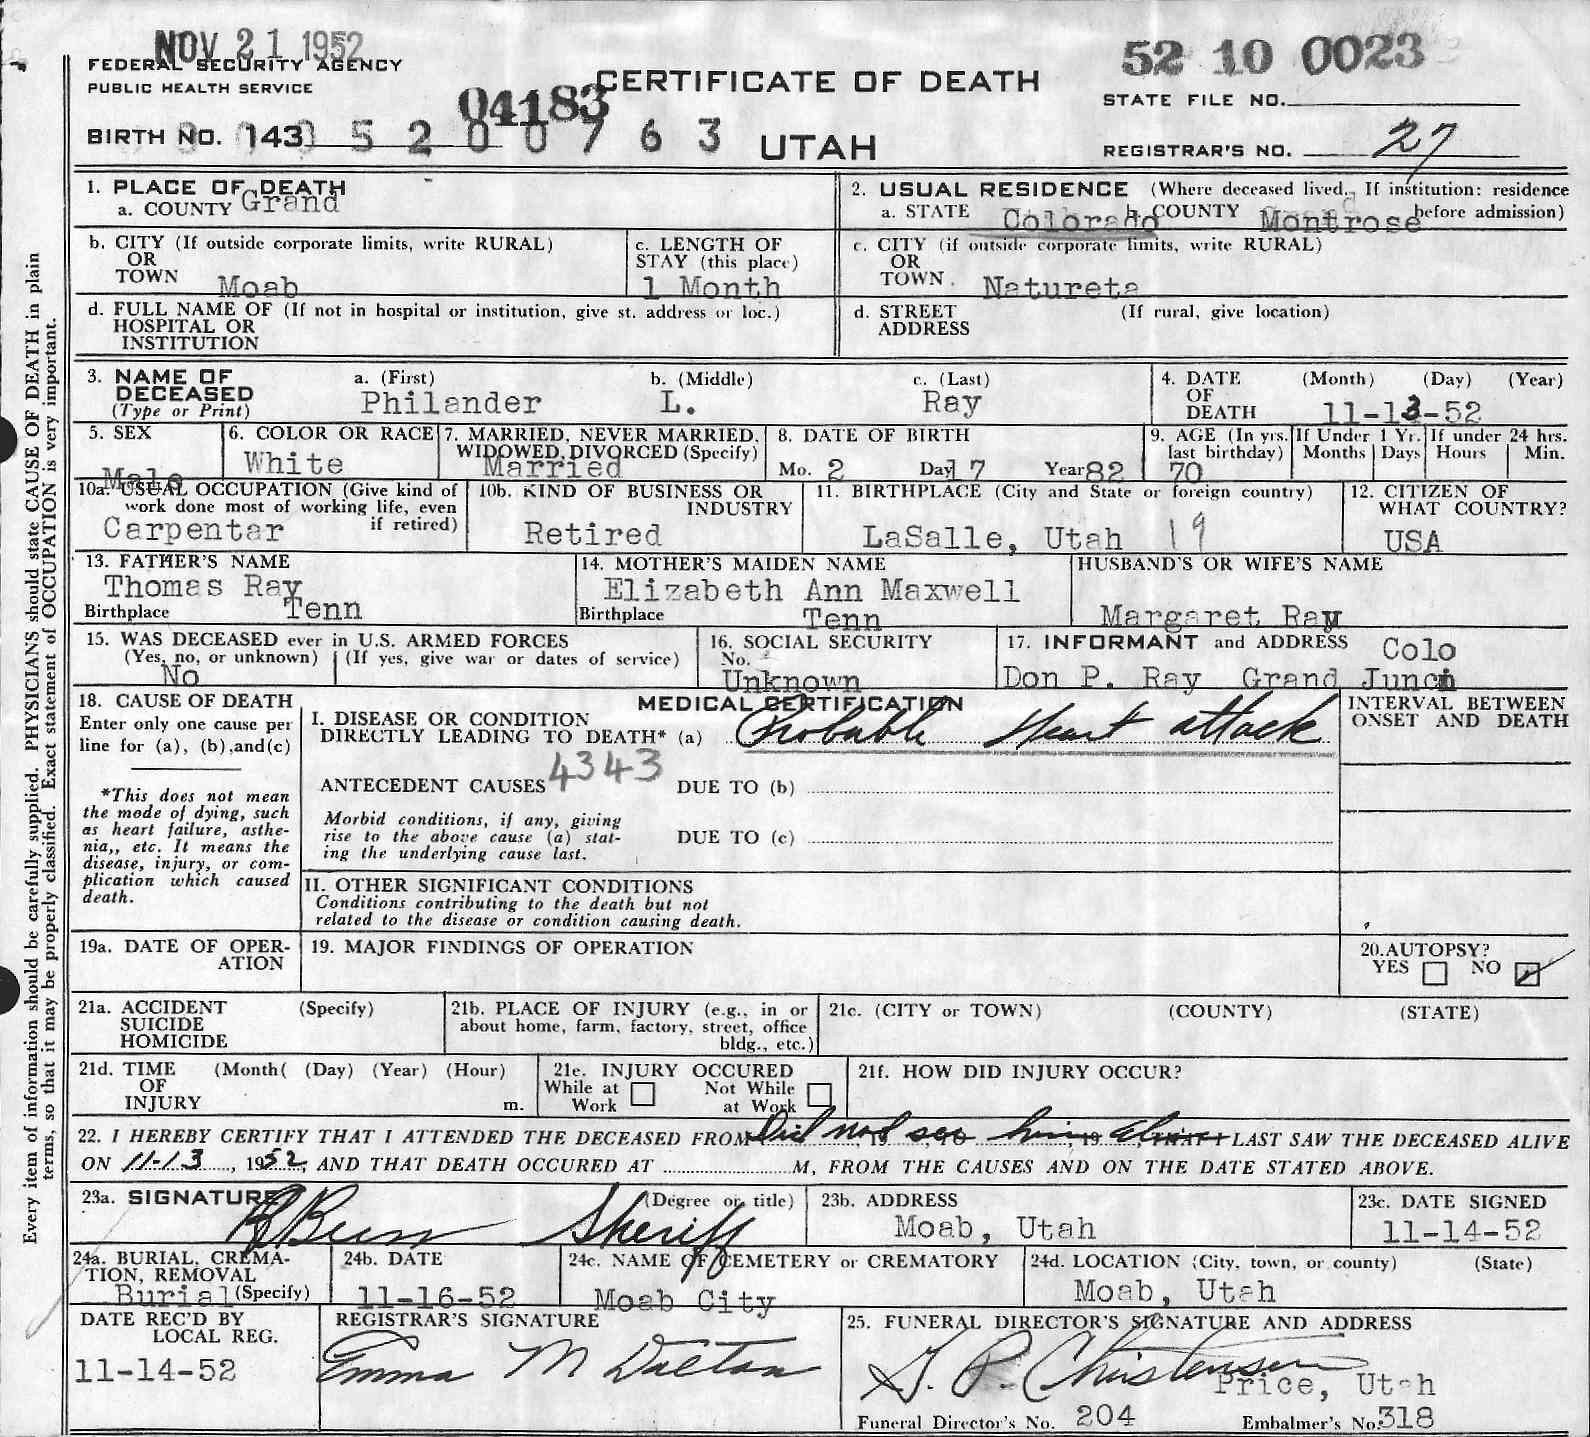 NOV 21 1952
FEDERAL SECURITY AGENCY
PUBLIC HEALTH SERVICE
CERTIFICATE OF DEATH
52 10 0023
STATE FILE NO.
04183
BIRTH NO. 143 5 2 0 0 7 6 3
UTAH
REGISTRAR'S NO. 27
1. PLACE OF DEATH
a. COUNTY Grand
2. USUAL RESIDENCE (Where deceased lived. If institution: residence
a. STATE Colorado b. COUNTY Montrose before admission)
b. CITY (If outside corporate limits, write RURAL)
OR
TOWN Moab
c. LENGTH OF
STAY (this place)
1 Month
c. CITY (if outside corporate limits, write RURAL)
OR
TOWN. Natureta
d. FULL NAME OF (If not in hospital or institution, give st. address or loc.)
HOSPITAL OR
INSTITUTION
d. STREET (If rural, give location)
ADDRESS
3. NAME OF
DECEASED
(Type or Print)
a. (First) b. (Middle) c. (Last)
Philander L. Ray
4. DATE (Month) (Day) (Year)
OF
DEATH 11-13-52
5. SEX
Male
6. COLOR OR RACE
White
7. MARRIED, NEVER MARRIED,
WIDOWED, DIVORCED (Specify)
Married
8. DATE OF BIRTH
Mo. 2 Day 17 Year 82
9. AGE (In yrs. last birthday)
70
If Under 1 Yr.
Months Days
If under 24 hrs.
Hours Min.
10a. USUAL OCCUPATION (Give kind of
work done most of working life, even
if retired)
Carpentar
10b. KIND OF BUSINESS OR
INDUSTRY
Retired
11. BIRTHPLACE (City and State or foreign country)
LaSalle, Utah 19
12. CITIZEN OF
WHAT COUNTRY?
USA
13. FATHER'S NAME
Thomas Ray
Birthplace Tenn
14. MOTHER'S MAIDEN NAME
Elizabeth Ann Maxwell
Birthplace Tenn
HUSBAND'S OR WIFE'S NAME
Margaret Ray
15. WAS DECEASED ever in U.S. ARMED FORCES
(Yes, no, or unknown) (If yes, give war or dates of service)
No
16. SOCIAL SECURITY
No.
Unknown
17. INFORMANT and ADDRESS Colo
Don P. Ray Grand Junc
18. CAUSE OF DEATH
Enter only one cause per
line for (a), (b),and(c)
*This does not mean
the mode of dying, such
as heart failure, asthe-
nia,, etc. It means the
disease, injury, or com-
plication which caused
death.
MEDICAL CERTIFICATION
I. DISEASE OR CONDITION
DIRECTLY LEADING TO DEATH* (a) Probable Heart attack
ANTECEDENT CAUSES 4343 DUE TO (b)
Morbid conditions, if any, giving
rise to the above cause (a) stat-
ing the underlying cause last.
DUE TO (c)
II. OTHER SIGNIFICANT CONDITIONS
Conditions contributing to the death but not
related to the disease or condition causing death.
INTERVAL BETWEEN
ONSET AND DEATH
19a. DATE OF OPER-
ATION
19. MAJOR FINDINGS OF OPERATION
20.AUTOPSY?
YES NO
21a. ACCIDENT (Specify)
SUICIDE
HOMICIDE
21b. PLACE OF INJURY (e.g., in or
about home, farm, factory, street, office
bldg., etc.)
21c. (CITY or TOWN) (COUNTY) (STATE)
21d. TIME (Month( (Day) (Year) (Hour)
OF
INJURY m.
21e. INJURY OCCURED
While at Work
Not While at Work
21f. HOW DID INJURY OCCUR?
22. I HEREBY CERTIFY THAT I ATTENDED THE DECEASED FROM Did not see him alive LAST SAW THE DECEASED ALIVE
ON 11-13, 1952, AND THAT DEATH OCCURED AT M, FROM THE CAUSES AND ON THE DATE STATED ABOVE.
23a. SIGNATURE (Degree or title)
Sheriff
23b. ADDRESS
Moab, Utah
23c. DATE SIGNED
11-14-52
24a. BURIAL, CREMA-
TION, REMOVAL
Burial (Specify)
24b. DATE
11-16-52
24c. NAME OF CEMETERY or CREMATORY
Moab City
24d. LOCATION (City, town, or county) (State)
Moab, Utah
DATE REC'D BY
LOCAL REG.
11-14-52
REGISTRAR'S SIGNATURE
Emma M Dalton
25. FUNERAL DIRECTOR'S SIGNATURE AND ADDRESS
Christensen
Price, Utah
Funeral Director's No. 204 Embalmer's No. 318
Every item of information should be carefully supplied. PHYSICIANS should state CAUSE OF DEATH in plain
terms, so that it may be properly classified. Exact statement of OCCUPATION is very important.